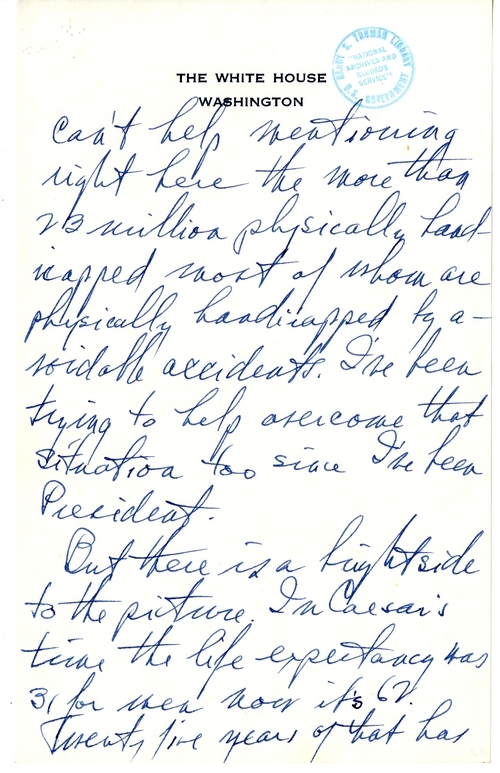 HARRY S. TRUMAN LIBRARY
"NATIONAL
ARCHIVES AND
RECORDS
SERVICE"
U.S. GOVERNMENT
THE WHITE HOUSE
WASHINGTON
can't help mentioning
right here the more than
23 million physically hand-
icapped most of whom are
physically handicapped by a-
voidable accidents. I've been
trying to help overcome that
situation too since I've been
President.
But there is a bright side
to the picture. In Caesar's
time the life expectancy was
31 for men now it's 62.
Twenty five years of that has